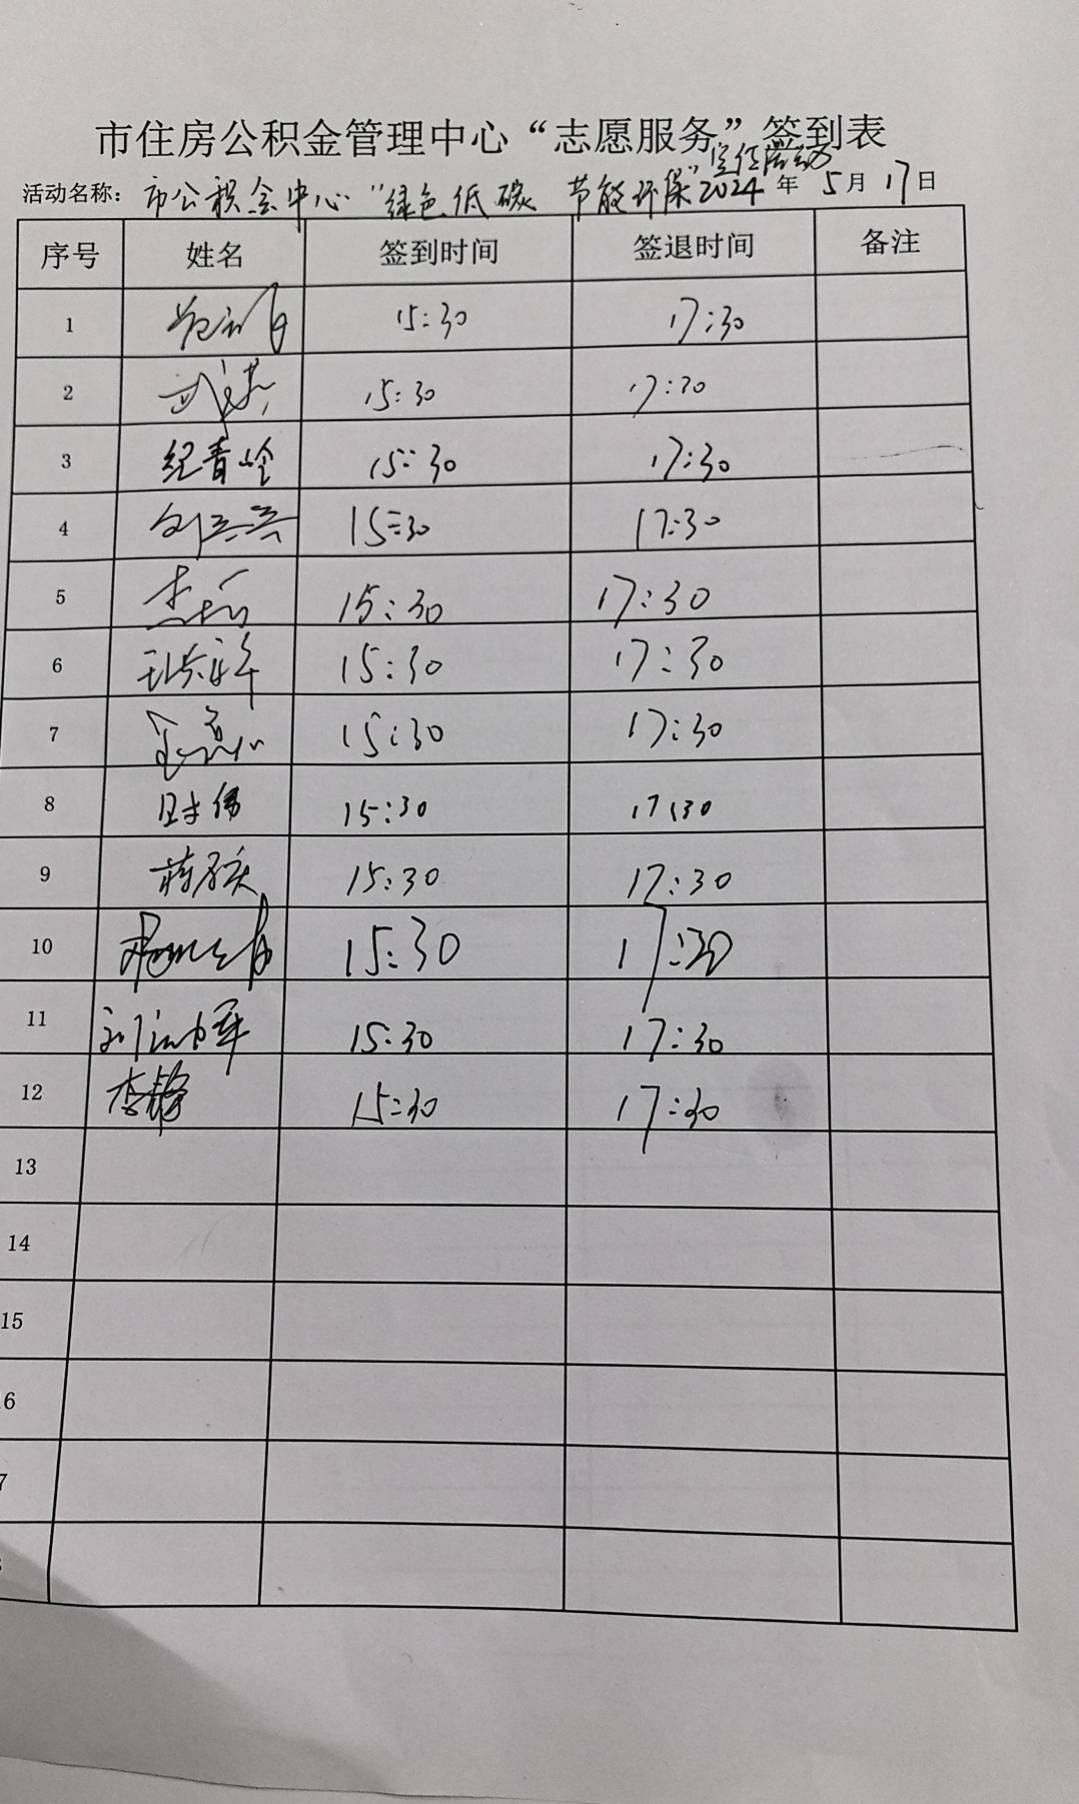 市住房公积金管理中心“志愿服务”签到表
宣传活动
活动名称：市公积金中心“绿色低碳 节能环保” 2024年5月17日
序号 姓名 签到时间 签退时间 备注
1 15:30 17:30
2 15:30 17:30
3 纪青岭 15:30 17:30
4 15:30 17:30
5 15:30 17:30
6 15:30 17:30
7 15:30 17:30
8 15:30 17:30
9 15:30 17:30
10 15:30 17:30
11 15:30 17:30
12 李静 15:30 17:30
13
14
15
6
7